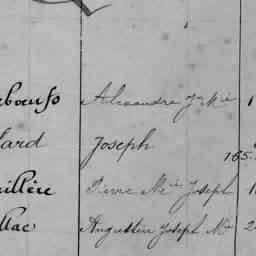 Alexandre Jn Mie
ard Joseph
165
illère Pierre Mie Joseph
llac Augustin Joseph Mie 2